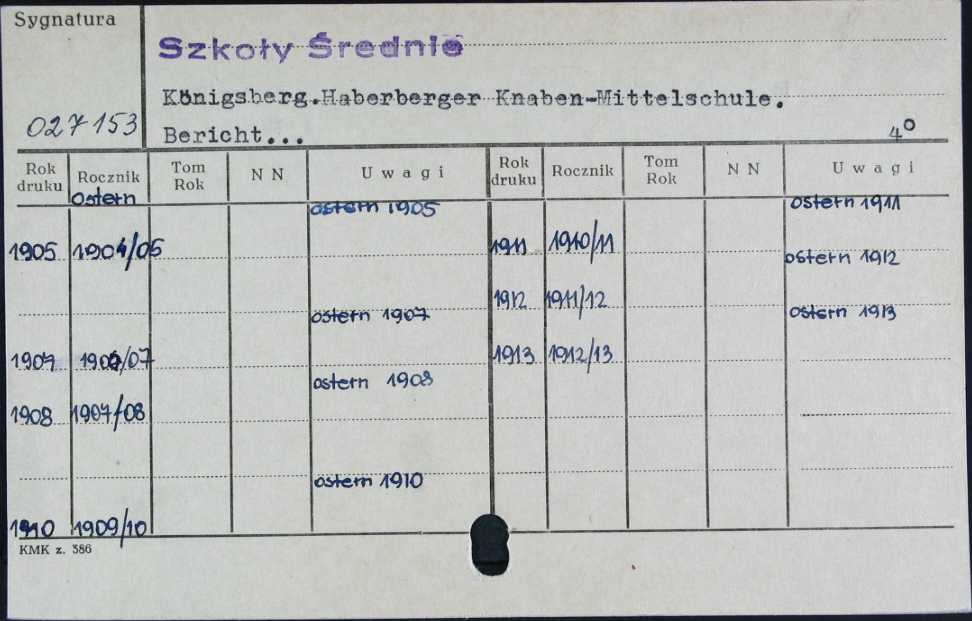 Sygnatura
Szkoły Średnie
Königsberg.Haberberger Knaben-Mittelschule.
027153
Bericht... 4°
Rok druku Rocznik Tom Rok N N Uwagi Rok druku Rocznik Tom Rok N N Uwagi
ostern ostern 1905 ostern 1911
1905 1904/05 1911 1910/11
ostern 1912
1912 1911/12
ostern 1907 ostern 1913
1907 1906/07 1913 1912/13
ostern 1908
1908 1907/08
ostern 1910
1910 1909/10
KMK z. 386